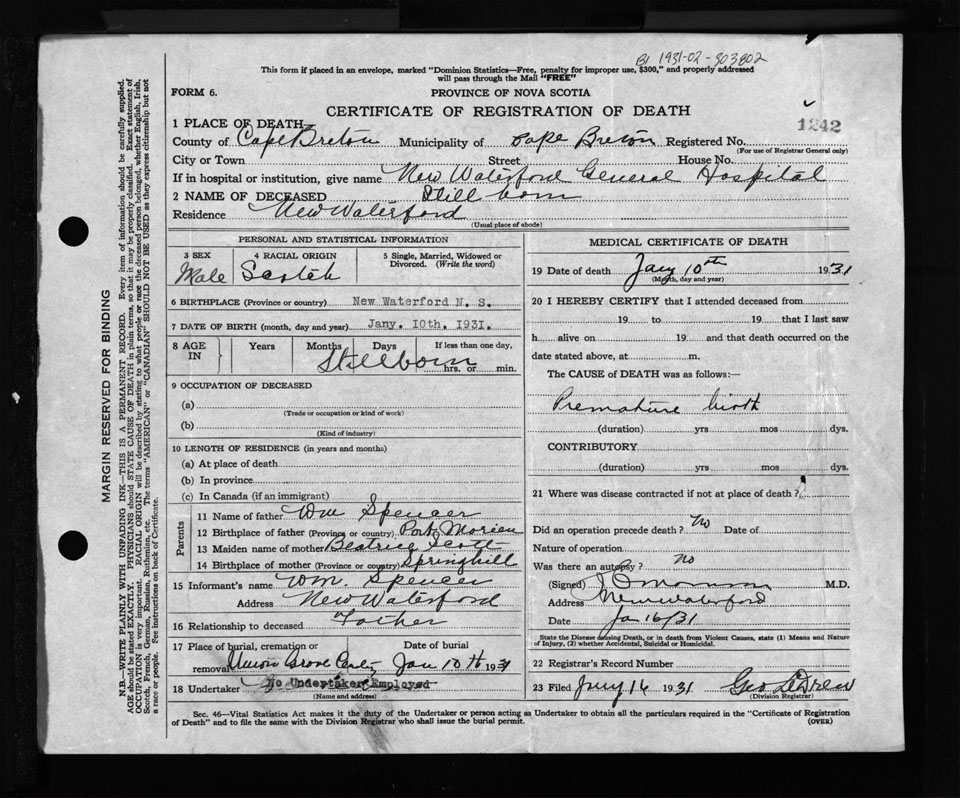 BI 1931-02-303802
This form if placed in an envelope, marked "Dominion Statistics—Free, penalty for improper use, $300," and properly addressed
will pass through the Mail "FREE"
FORM 6. PROVINCE OF NOVA SCOTIA
CERTIFICATE OF REGISTRATION OF DEATH
1242
1 PLACE OF DEATH
County of Cape Breton Municipality of Cape Breton Registered No.
(For use of Registrar General only)
City or Town Street House No.
If in hospital or institution, give name New Waterford General Hospital
2 NAME OF DECEASED Still born
Residence New Waterford
(Usual place of abode)
PERSONAL AND STATISTICAL INFORMATION
3 SEX 4 RACIAL ORIGIN 5 Single, Married, Widowed or
Divorced. (Write the word)
Male Scotch
6 BIRTHPLACE (Province or country) New Waterford N. S.
7 DATE OF BIRTH (month, day and year) Jany. 10th. 1931.
8 AGE IN Years Months Days If less than one day,
Stillborn hrs. or min.
9 OCCUPATION OF DECEASED
(a)
(Trade or occupation or kind of work)
(b)
(Kind of industry)
10 LENGTH OF RESIDENCE (in years and months)
(a) At place of death
(b) In province
(c) In Canada (if an immigrant)
Parents
11 Name of father Wm Spencer
12 Birthplace of father (Province or country) Port Morien
13 Maiden name of mother Beatrice Scott
14 Birthplace of mother (Province or country) Springhill
15 Informant's name Wm. Spencer
Address New Waterford
16 Relationship to deceased Father
17 Place of burial, cremation or Date of burial
removal Union Grove Jan 10th 1931
18 Undertaker No Undertaker Employed
(Name and address)
MEDICAL CERTIFICATE OF DEATH
19 Date of death Jany 10th 1931
(Month, day and year)
20 I HEREBY CERTIFY that I attended deceased from
19 to 19 that I last saw
h alive on 19 and that death occurred on the
date stated above, at m.
The CAUSE of DEATH was as follows:—
Premature birth
(duration) yrs mos dys.
CONTRIBUTORY
(duration) yrs mos dys.
21 Where was disease contracted if not at place of death?
Did an operation precede death? No Date of
Nature of operation
Was there an autopsy? no
(Signed) M.D.
Address New Waterford
Date Jan 16/31
State the Disease causing Death, or in death from Violent Causes, state (1) Means and Nature
of Injury, (2) whether Accidental, Suicidal or Homicidal.
22 Registrar's Record Number
23 Filed Jany 16 1931 Geo LeDrew
(Division Registrar)
Sec. 46—Vital Statistics Act makes it the duty of the Undertaker or person acting as Undertaker to obtain all the particulars required in the "Certificate of Registration
of Death" and to file the same with the Division Registrar who shall issue the burial permit. (OVER)
MARGIN RESERVED FOR BINDING
N.B.—WRITE PLAINLY WITH UNFADING INK—THIS IS A PERMANENT RECORD. Every item of information should be carefully supplied.
AGE should be stated EXACTLY. PHYSICIANS should STATE CAUSE OF DEATH in plain terms, so that it may be properly classified. Exact statement of
OCCUPATION is very important. RACIAL ORIGIN will be described by stating to what people or race the deceased person belonged, whether English, Irish,
Scotch, French, German, Russian, Ruthenian, etc. The terms "AMERICAN" or "CANADIAN" SHOULD NOT BE USED as they express citizenship but not
a race or people. See instructions on back of Certificate.